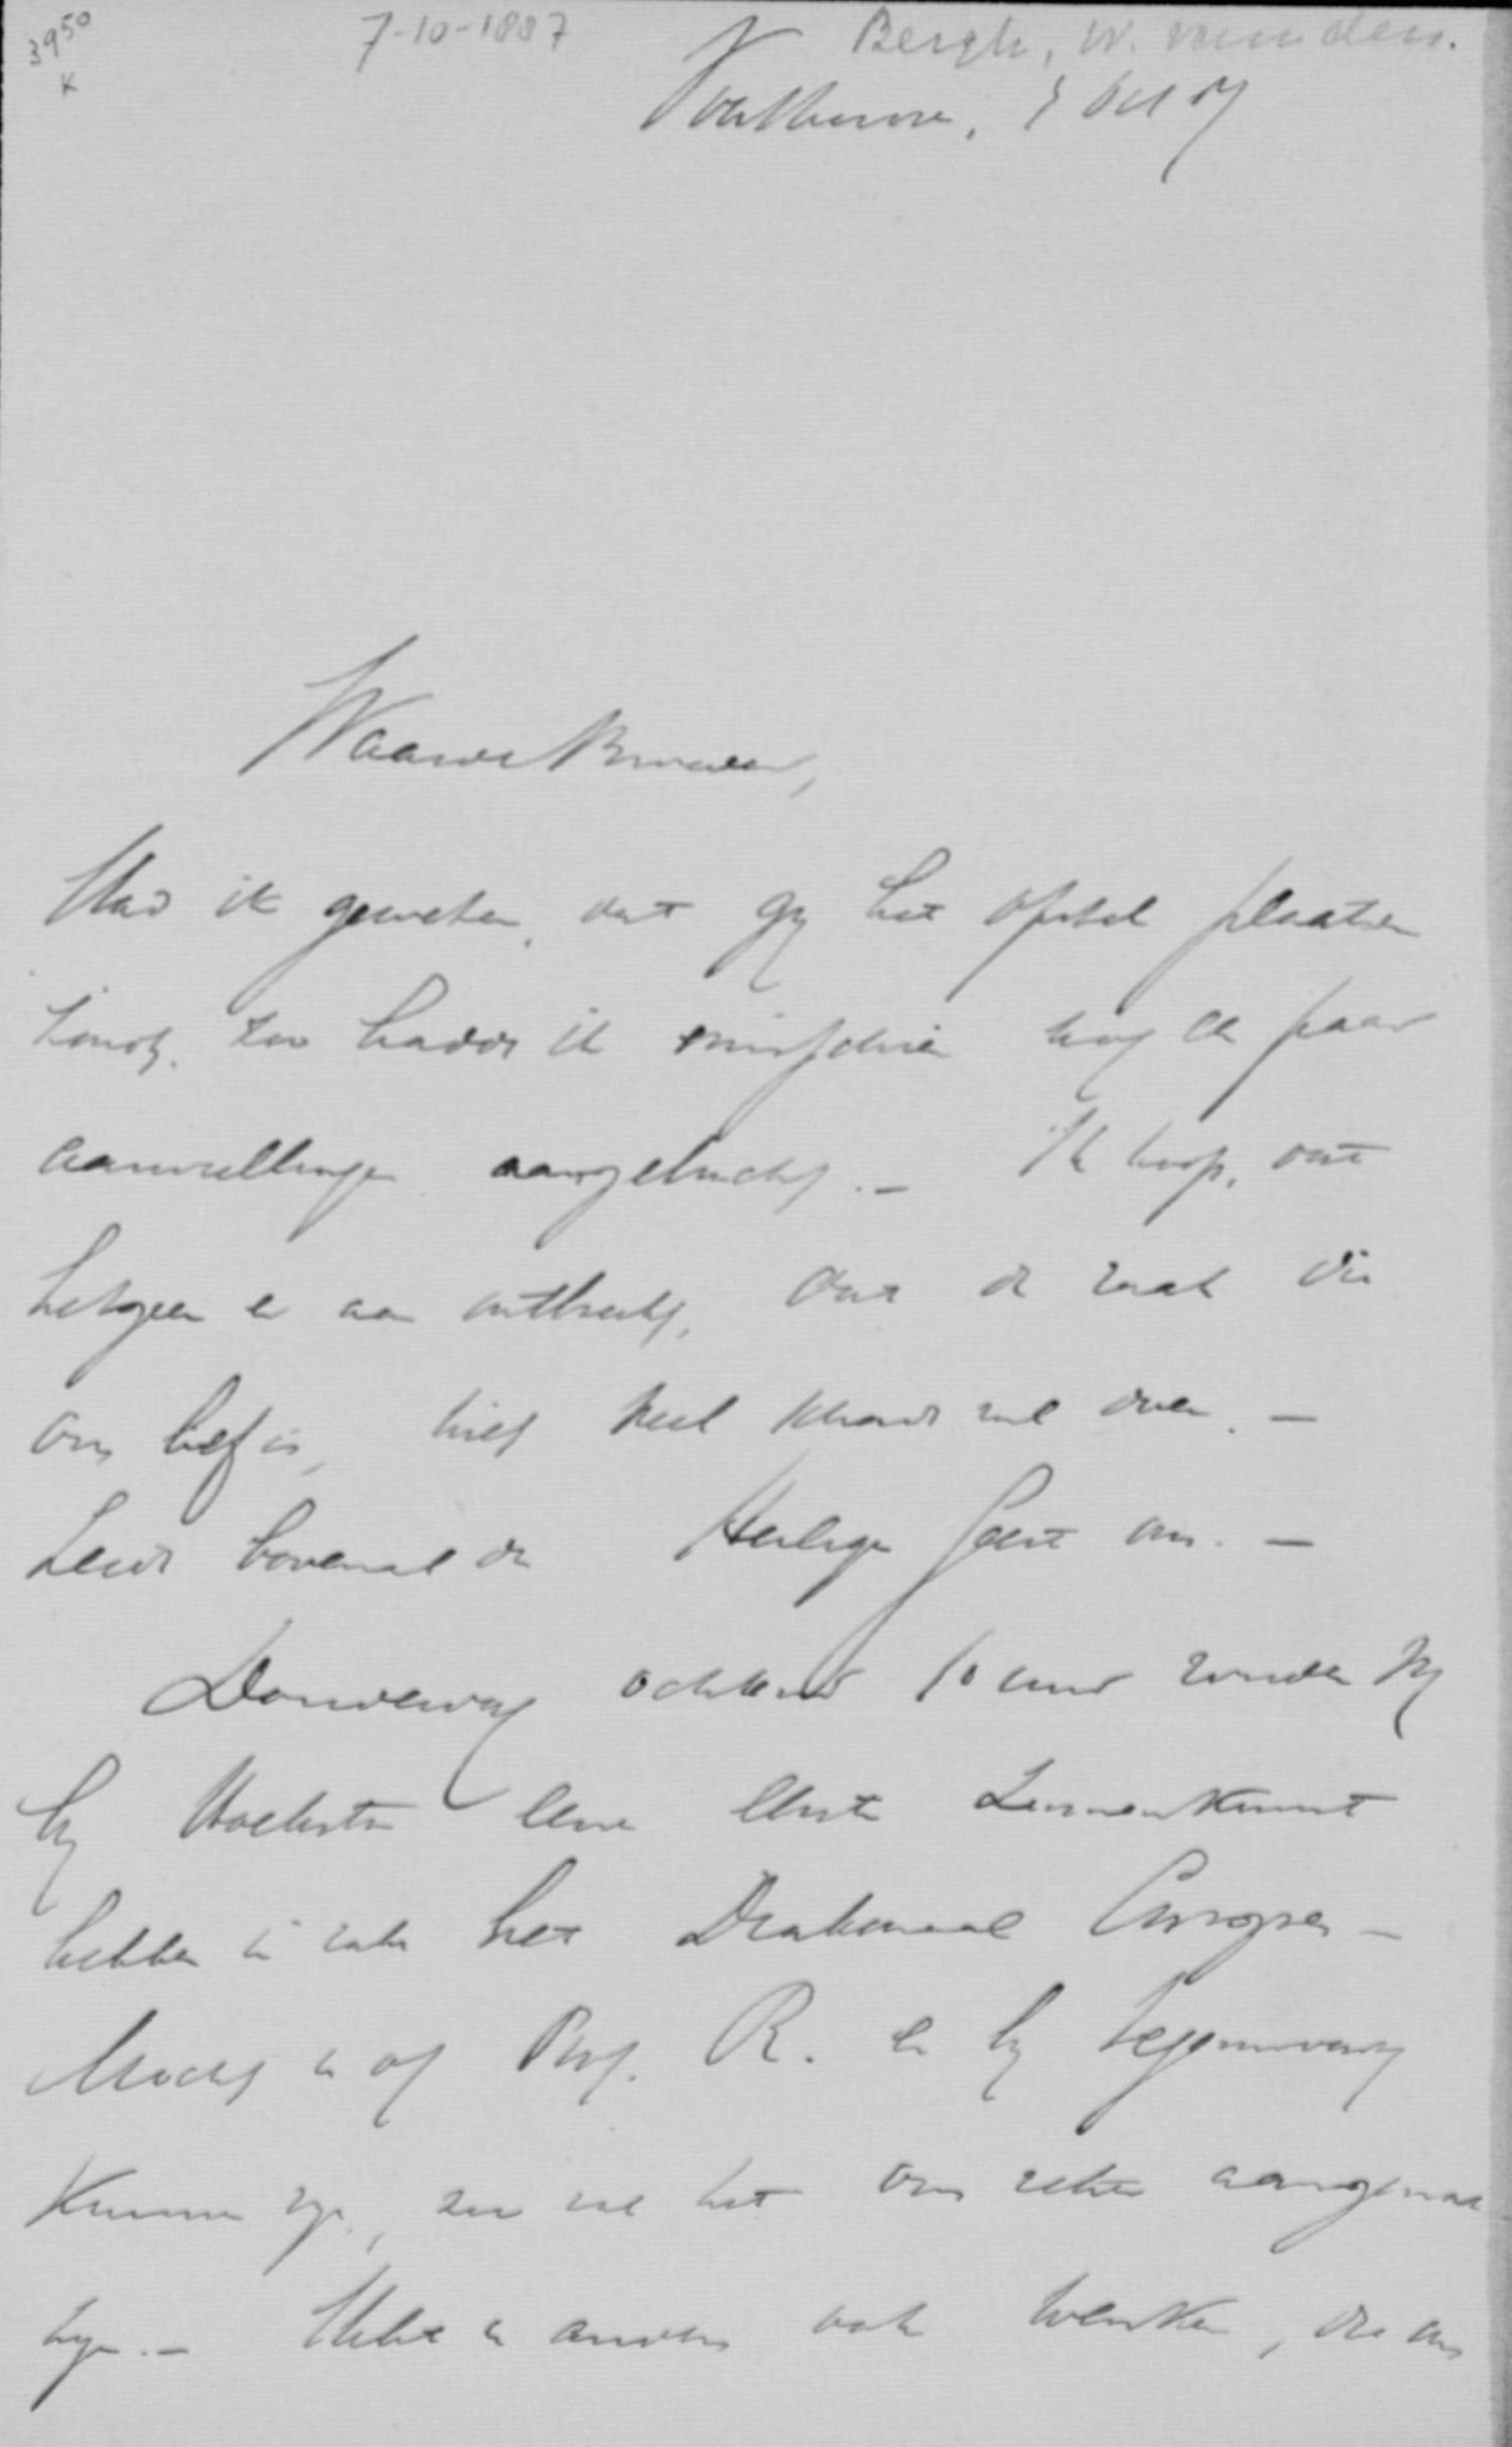 3950
K
7-10-1887
Bergh, W. van den.
Voorthuizen, 7 Oct 87
Waarde Broeder,
Had ik geweten, dat gij het opstel plaatsen
zoudt, zoo hadde ik misschien nog een paar
aanvullingen aangebracht. – Ik hoop, dat
hetgeen er aan ontbreekt, aan de zaak die
ons lief is, niet veel schade zal doen. –
Leide bovenal de Heilige Geest ons. –
Donderdag ochtend 10 uur zouden wij
bij Hoekstra eene eerste samenkomst
hebben in zake het Diakonaal Congres –
Mocht u of Prof. R. er bij tegenwoordig
kunnen zijn, zoo zal het ons zeker aangenaam
zijn. – Hebt u anders ook wenken, die ons